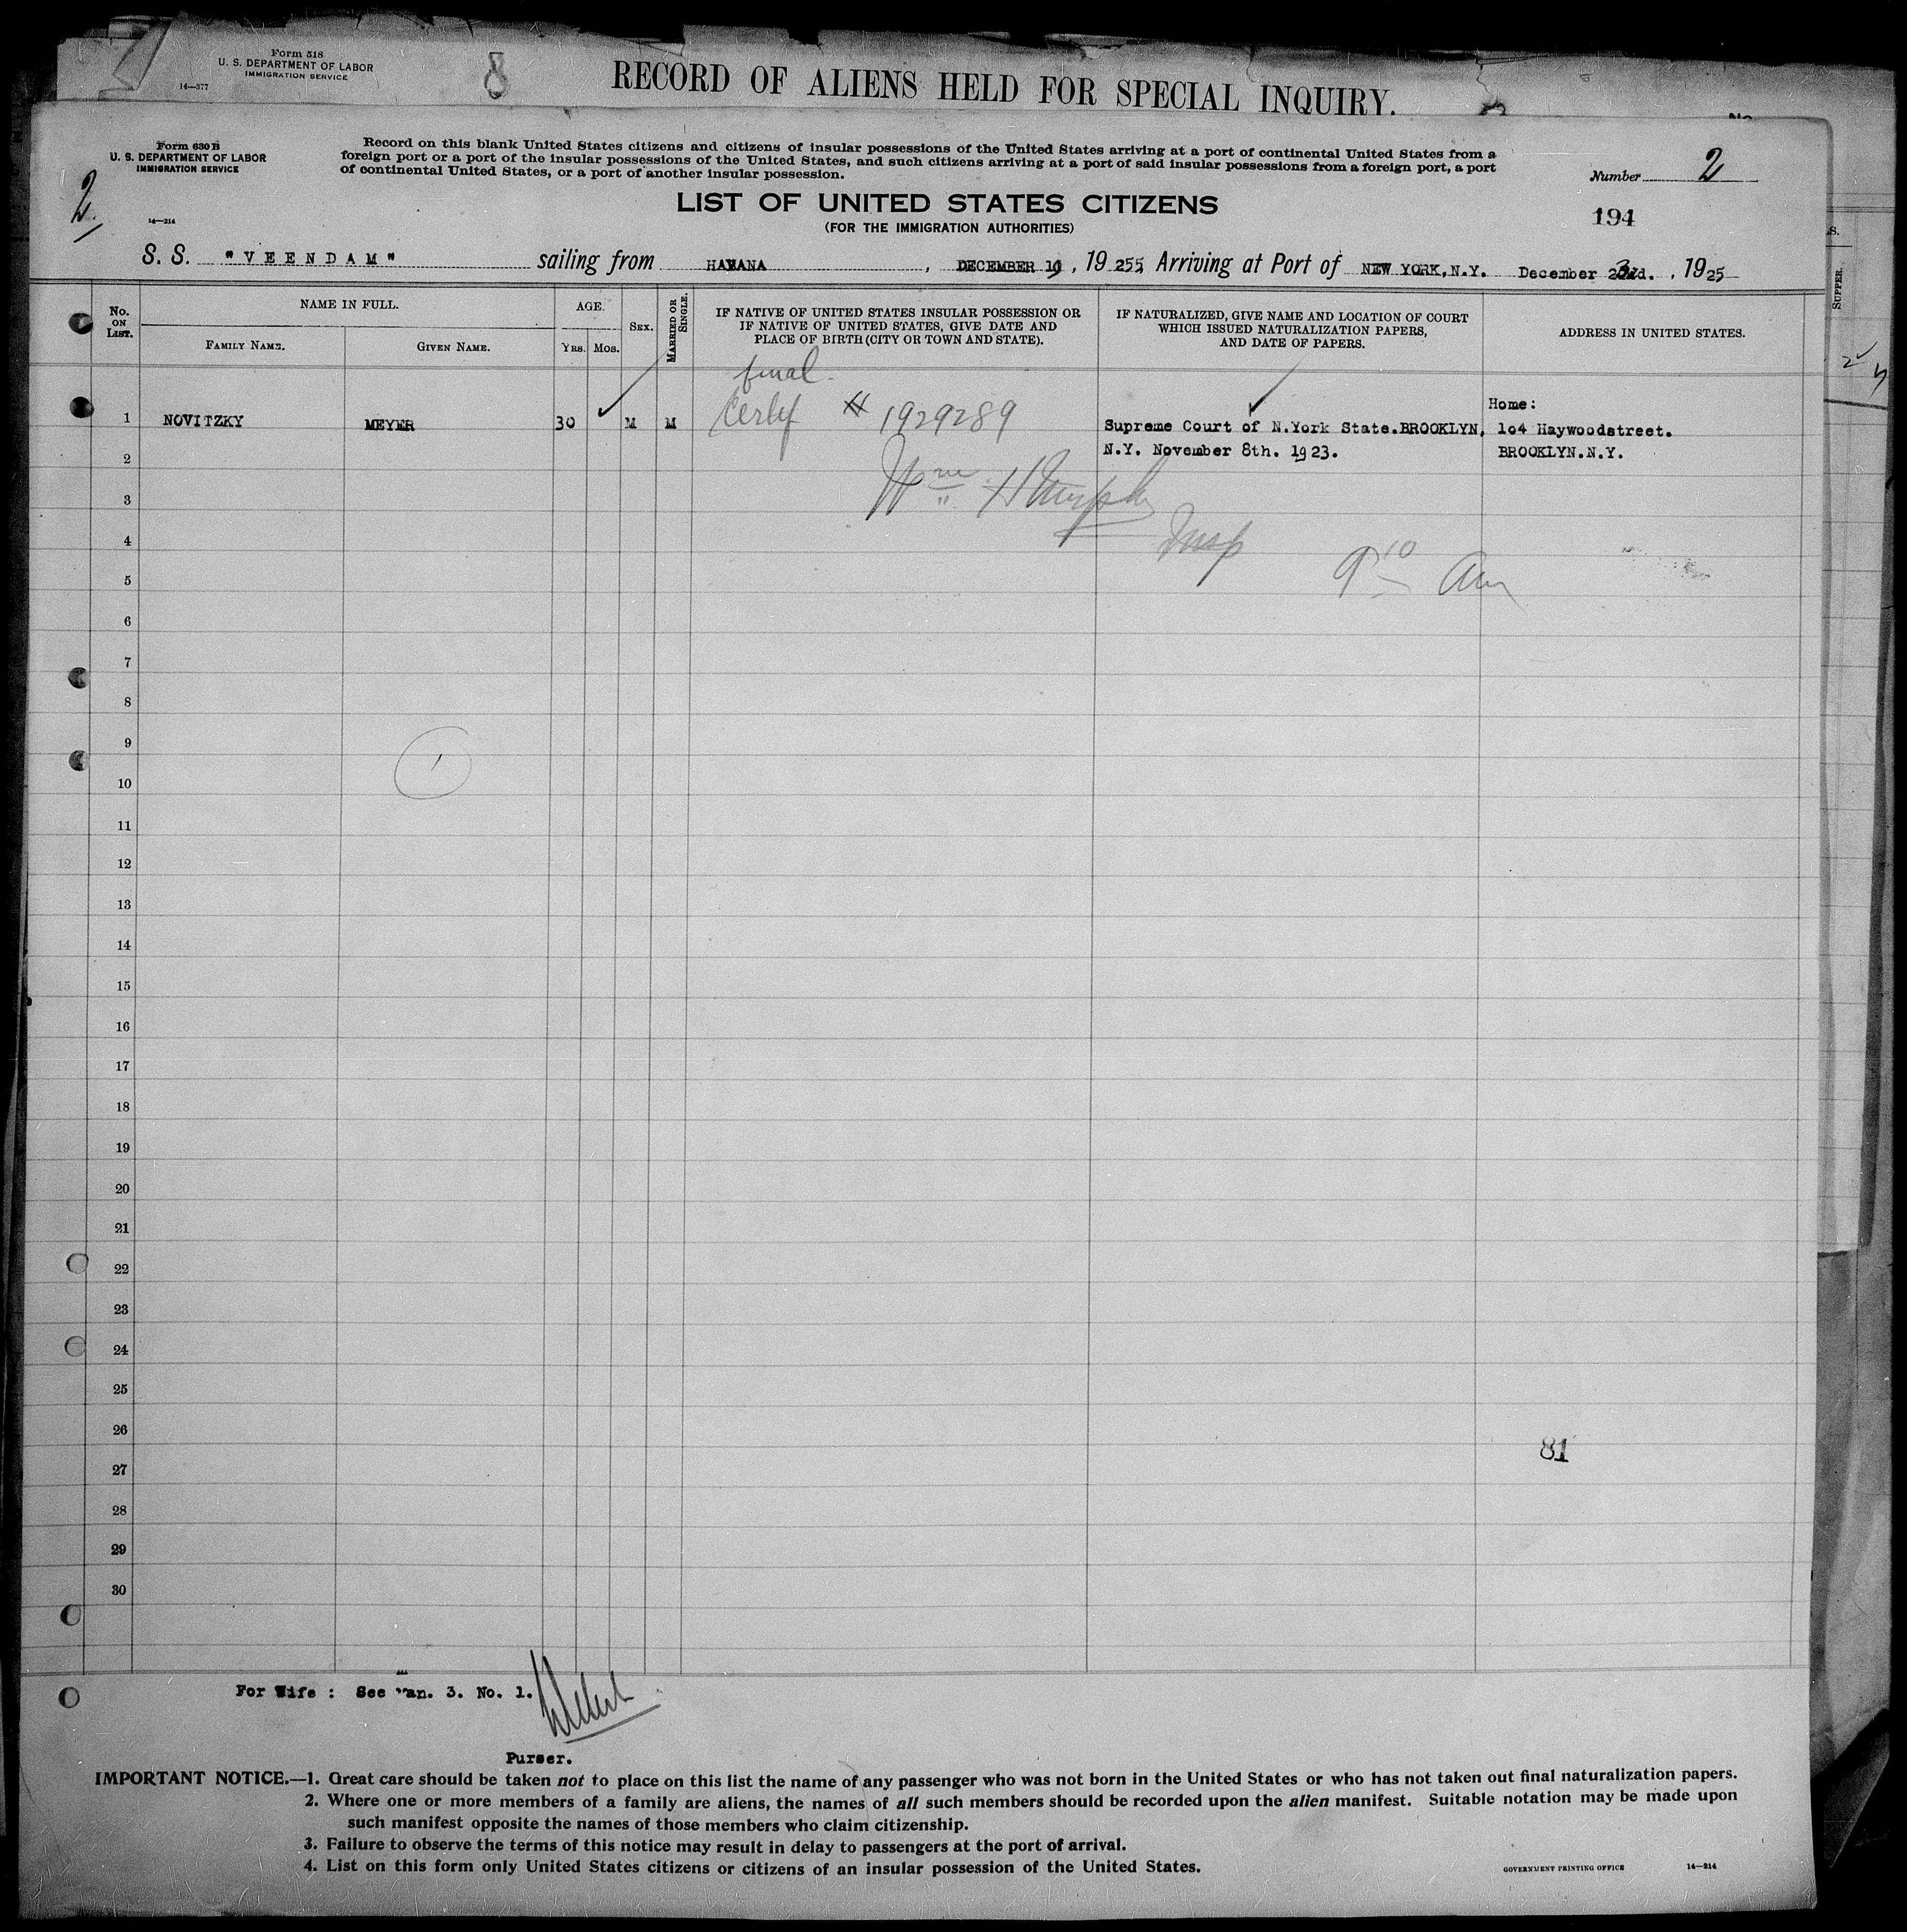 Form 518
U. S. DEPARTMENT OF LABOR
IMMIGRATION SERVICE
14—377
8
RECORD OF ALIENS HELD FOR SPECIAL INQUIRY.
Form 630 B
U. S. DEPARTMENT OF LABOR
IMMIGRATION SERVICE
14—214
2
Record on this blank United States citizens and citizens of insular possessions of the United States arriving at a port of continental United States from a
foreign port or a port of the insular possessions of the United States, and such citizens arriving at a port of said insular possessions from a foreign port, a port
of continental United States, or a port of another insular possession.
Number 2
LIST OF UNITED STATES CITIZENS
194
(FOR THE IMMIGRATION AUTHORITIES)
S. S. "VEENDAM" sailing from HAVANA, DECEMBER 19, 19 255, Arriving at Port of NEW YORK, N.Y. December 23d., 1925
No. ON LIST.
NAME IN FULL.
FAMILY NAME.
GIVEN NAME.
AGE.
YRS. MOS.
SEX.
MARRIED OR SINGLE.
IF NATIVE OF UNITED STATES INSULAR POSSESSION OR
IF NATIVE OF UNITED STATES, GIVE DATE AND
PLACE OF BIRTH (CITY OR TOWN AND STATE).
IF NATURALIZED, GIVE NAME AND LOCATION OF COURT
WHICH ISSUED NATURALIZATION PAPERS,
AND DATE OF PAPERS.
ADDRESS IN UNITED STATES.
SUPPER.
final
Home:
1 NOVITZKY MEYER 30 M M Certif # 1929289 Supreme Court of N.York State.BROOKLYN, 104 Haywoodstreet.
N.Y. November 8th. 1923. BROOKLYN.N.Y.
2
Wm H Murphy
3
Insp
4
9 10 am
5
6
7
8
9
1
10
11
12
13
14
15
16
17
18
19
20
21
22
23
24
25
26
81
27
28
29
30
For Wife : See Man. 3. No. 1.
Purser.
IMPORTANT NOTICE.—1. Great care should be taken not to place on this list the name of any passenger who was not born in the United States or who has not taken out final naturalization papers.
2. Where one or more members of a family are aliens, the names of all such members should be recorded upon the alien manifest. Suitable notation may be made upon
such manifest opposite the names of those members who claim citizenship.
3. Failure to observe the terms of this notice may result in delay to passengers at the port of arrival.
4. List on this form only United States citizens or citizens of an insular possession of the United States.
GOVERNMENT PRINTING OFFICE 14—214